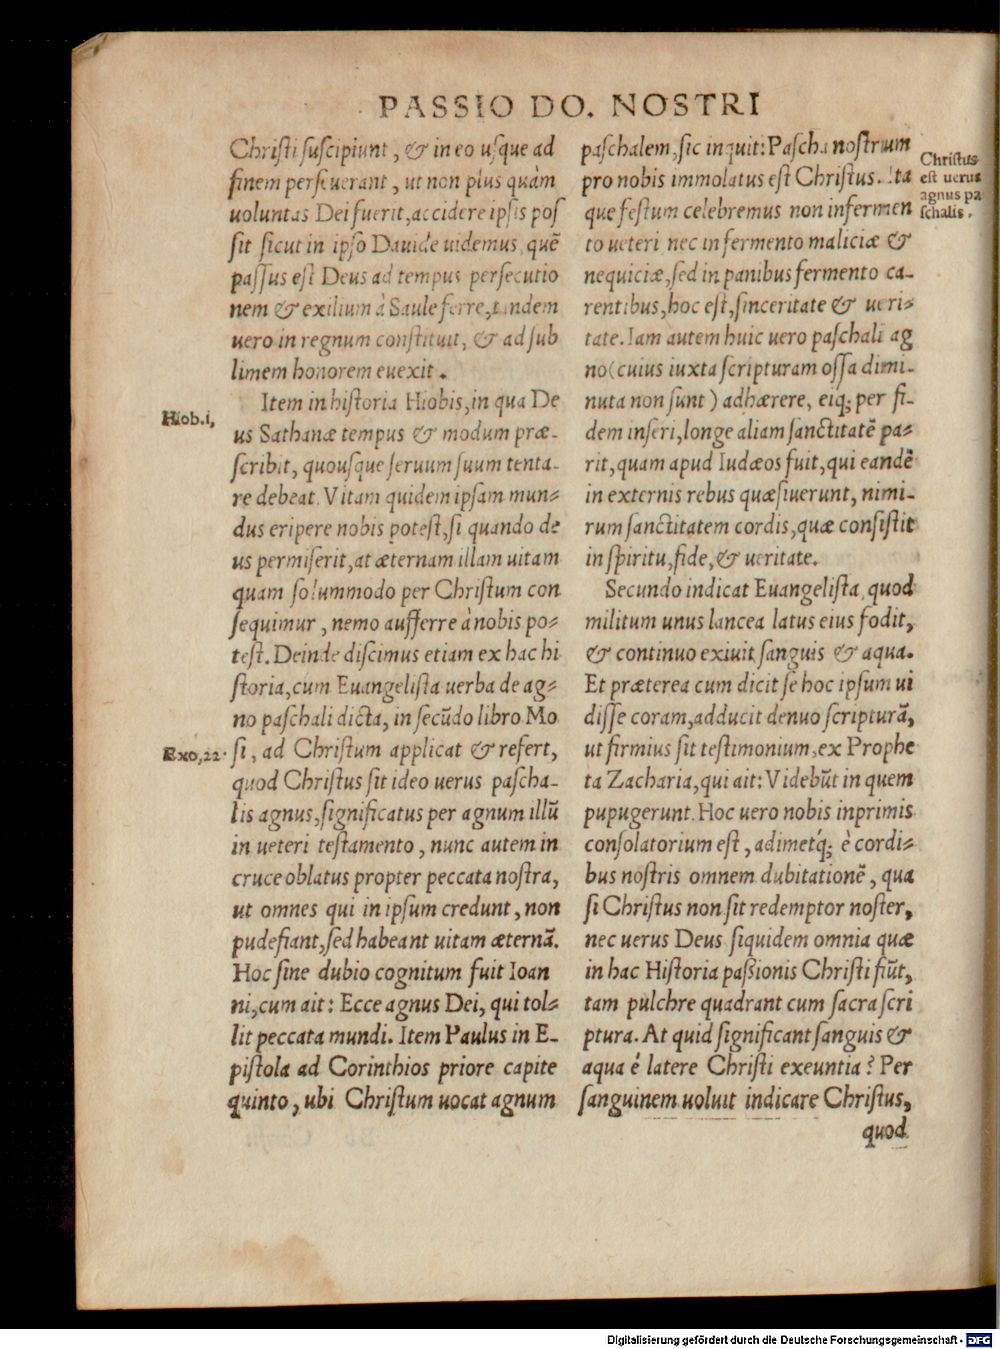 PASSIO DO. NOSTRI
Chriſti ſuſcipiunt, & in eo uſque ad
finem perſeuerant, ut non plus quàm
uoluntas Dei fuerit, accidere ipſis poſ
ſit ſicut in ipſo Dauide uidemus, quẽ
paſſus eſt Deus ad tempus perſecutio
nem & exilium à Saule ferre, tandem
uero in regnum conſtituit, & ad ſub
limem honorem euexit.
Hiob.i,
Item in hiſtoria Hiobis, in qua De
us Sathanæ tempus & modum præ-
ſcribit, quouſque ſeruum ſuum tenta-
re debeat. Vitam quidem ipſam mun⸗
dus eripere nobis poteſt, ſi quando de
us permiſerit, at æternam illam uitam
quam ſolummodo per Chriſtum con
ſequimur, nemo aufferre à nobis po⸗
teſt. Deinde diſcimus etiam ex hac hi
ſtoria, cum Euangeliſta uerba de ag⸗
no paſchali dicta, in ſecũdo libro Mo
Exo,22.
ſi, ad Chriſtum applicat & refert,
quod Chriſtus ſit ideo uerus paſcha-
lis agnus, ſignificatus per agnum illũ
in ueteri teſtamento, nunc autem in
cruce oblatus propter peccata noſtra,
ut omnes qui in ipſum credunt, non
pudefiant, ſed habeant uitam æternã.
Hoc ſine dubio cognitum fuit Ioan
ni, cum ait: Ecce agnus Dei, qui tol⸗
lit peccata mundi. Item Paulus in E-
piſtola ad Corinthios priore capite
quinto, ubi Chriſtum uocat agnum
paſchalem, ſic inquit: Paſcha noſtrum
pro nobis immolatus eſt Chriſtus. Ita
que feſtum celebremus non in fermen
to ueteri nec in fermento maliciæ &
nequiciæ, ſed in panibus fermento ca-
rentibus, hoc eſt, ſinceritate & ueri⸗
tate. Iam autem huic uero paſchali ag
no (cuius iuxta ſcripturam oſſa dimi-
nuta non ſunt) adhærere, eiq́; per fi-
dem inſeri, longe aliam ſanctitatẽ pa⸗
rit, quam apud Iudæos fuit, qui eandẽ
in externis rebus quæſiuerunt, nimi-
rum ſanctitatem cordis, quæ conſiſtit
in ſpiritu, fide, & ueritate.
Secundo indicat Euangeliſta, quod
militum unus lancea latus eius fodit,
& continuo exiuit ſanguis & aqua.
Et præterea cum dicit ſe hoc ipſum ui
diſſe coram, adducit denuo ſcripturã,
ut firmius ſit teſtimonium, ex Prophe
ta Zacharia, qui ait: Videbũt in quem
pupugerunt. Hoc uero nobis inprimis
conſolatorium eſt, adimetq́; è cordi⸗
bus noſtris omnem dubitationẽ, qua
ſi Chriſtus non ſit redemptor noſter,
nec uerus Deus ſiquidem omnia quæ
in hac Hiſtoria paſsionis Chriſti fiũt,
tam pulchre quadrant cum ſacra ſcri
ptura. At quid ſignificant ſanguis &
aqua é latere Chriſti exeuntia? Per
ſanguinem uoluit indicare Chriſtus,
quod
Chriſtus
eſt uerus
agnus pa
ſchalis.
Digitalisierung gefördert durch die Deutsche Forschungsgemeinschaft - DFG